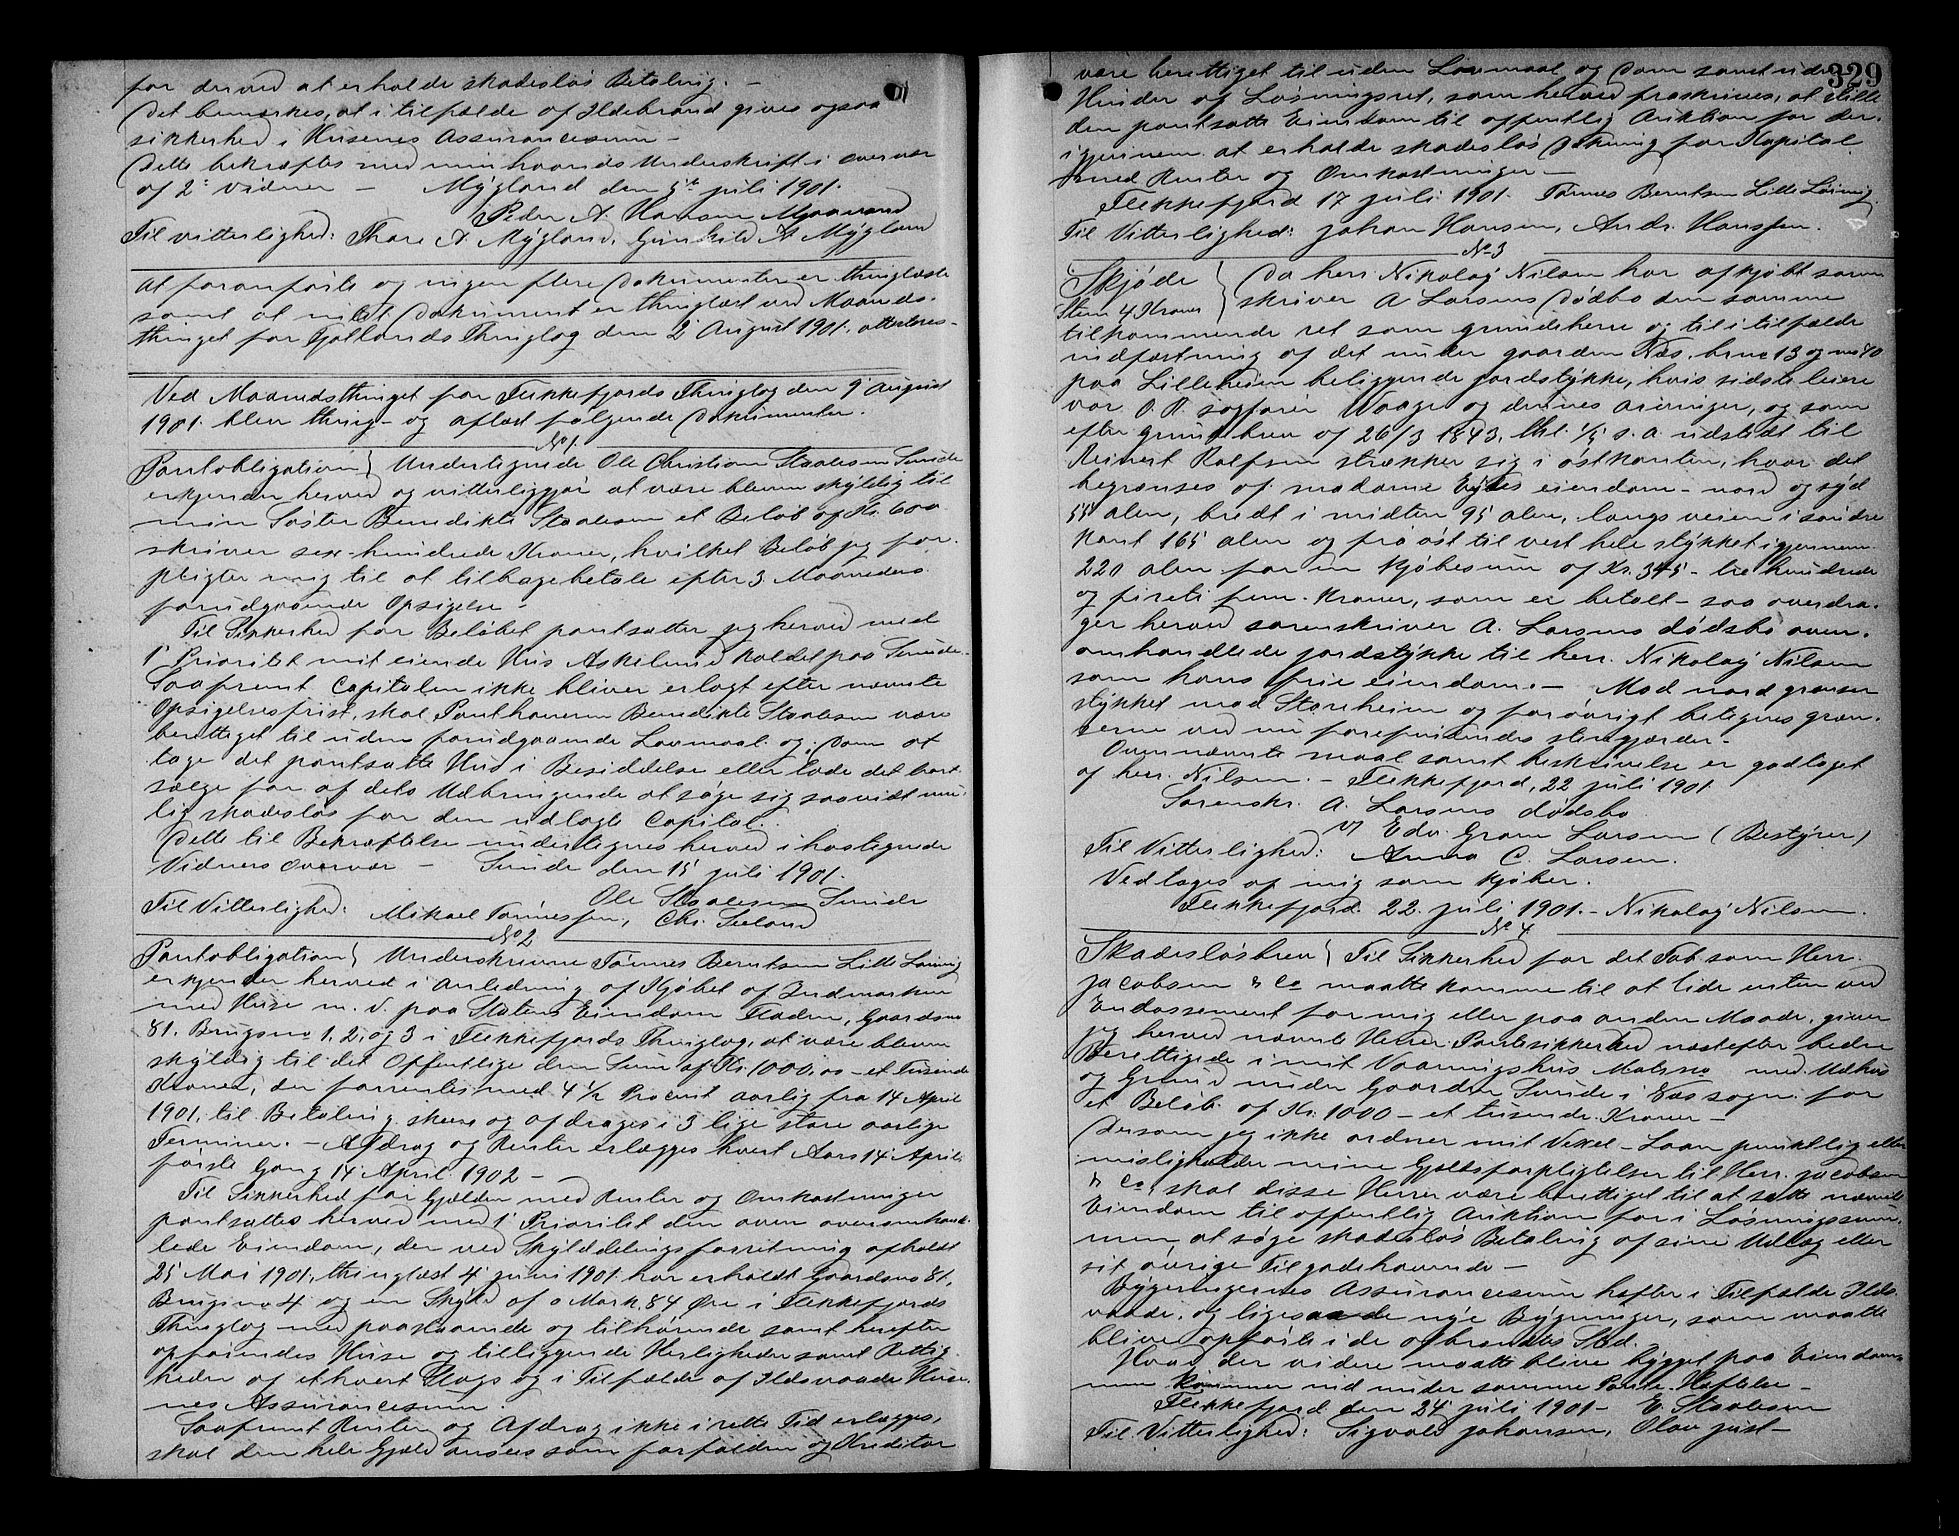 for derved at erholde skadesløs Betaling. —
Det bemærkes, at i tilfælde af Ildebrand gives ogsaa
sikkerhed i Husenes Assurancesum —
Dette bekræftes med min haands Underskrift i overvær
af 2de vidner — Mygland den 5te juli 1901.
Peder A. Hansen
Til vitterlighed: Thore A. Mygland, Gunhild A. Mygland
At foranførte og ingen flere Dokumenter er thinglæste
samt at intet Dokument er thinglæst ved Maaneds-
thinget for Fjotlands Thinglag den 2 August 1901. attesteres -
Ved Maanedsthinget for Flekkefjords Thinglag den 9 August
1901. blev thing- og aflæst følgende Dokumenter.
No 1.
Pantobligation } Undertegnede Ole Christian Staalesen Sunde
erkjender herved og vitterliggjør at være bleven skyldig til
min Søster Bendikte Staalesen et Beløb af Kr. 600
skriver sex-hundrede Kroner, hvilket Beløb jeg for-
pligter mig til at tilbagebetale efter 3 Maaneders
forudgaaende Opsigelse -
Til Sikkerhed for Beløbet pantsætter jeg herved med
1' Prioritet mit eiende Hus Askelund kaldet paa Sunde.
Saafremt Capitalen ikke bliver erlagt efter nævnte
Opsigelsesfrist, skal Panthaveren Bendikte Staalesen være
berettiget til uden forudgaaende Lovmaal og Dom at
tage det pantsatte Hus i Besiddelse eller lade det bort-
sælge for af dets Udbringende at søge sig saavidt mu-
lig skadesløs for den udlagte Capital.
Dette til Bekræftelse undertegnes herved i hoslignede
Vidners overvær — Sunde den 15 juli 1901.
Ole Staalesen Sunde
Til Vitterlighed: Mikael Tønnessen, Chr. Seland
No 2
Pantobligation } Underskrevne Tønnes Berntsen Lille Løining
erkjender herved i Anledning af Kjøbet af Indmarken
med Huse m. v. paa Statens Eiendom Fladen, Gaardsno
81. Brugsno 1, 2, og 3 i Flekkefjords Thinglag, at være bleven
skyldig til det Offentlige den Sum af Kr. 1000,00 - et Tusinde
Kroner, der forrentes med 4 1/2 Procent aarlig fra 14 April
1901. til Betaling skeer og afdrages i 3 lige store aarlige
Terminer. - Afdrag og Renter erlægges hvert Aars 14 April
første Gang 14 April 1902 -
Til Sikkerhed for Gjælden med Renter og Omkostninger
pantsættes herved med 1' Prioritet den oven overomhand-
lede Eiendom, der ved Skylddelingsforretning afholdt
25 Mai 1901, thinglæst 4 juni 1901 har erholdt Gaardsno 81,
Brugsno 4 og en Skyld af 0 Mark 84 Øre i Flekkefjords
Thinglag med paastaaende og tilhørende samt herefter
opførendes Huse og tilliggende Herligheder samt Rettig-
heder af ethvert Slags og i Tilfælde af Ildsvaade Huse-
nes Assurancesum.
Saafremt Renter og Afdrag ikke i rette Tid erlægges,
skal den hele Gjæld ansees som forfalden og Kreditor
329
være berettiget til uden Lovmaal og Dom samt uden
Hinder og Løsningsret, som herved fraskrives, at stille
den pantsatte Eiendom til offentlig Auktion for der-
igjennem at erholde skadesløs Dækning for Kapital
med Renter og Omkostninger —
Flekkefjord 17 juli 1901. Tønnes Berntsen Lille Løining.
Til Vitterlighed: Johan Hansen, Andr. Hanssen.
No 3
Skjøde } Da herr Nikolay Nilsen har afkjøbt soren
Stem 4 Kroner } skriver A Larsens Dødsbo den samme
tilkommende ret som grundeherre og til i tilfælde
indfæstning af det under gaarden Næs, brno 13 og no 40
paa Lilleheien beliggende jordstykke, hvis sidste leier
var O. R. sagfører Waage og dennes arvinger, og som
efter grundebrev af 26/3 1843, thl. 1/5 s. a. udstedt til
Reinert Rolfsen strækker sig i østkanten, hvor det
begrænses af madame Eydes eiendom - nord og syd
55 alen, bredt i midten 95 alen, langs veien i søndre
kant 165 alen og fra øst til vest hele stykket igjennem
220 alen for en kjøbesum af Kr. 345 - tre hundrede
og fireti fem - Kroner, som er betalt - saa overdra-
ger herved sorenskriver A. Larsens dødsbo oven-
omhandlede jordstykke til herr. Nikolay Nilsen
som hans frie eiendom. - Mod nord grænser
stykket mod Stanheien og forøvrigt betegnes græn-
serne ved nu forefindende stengjærder -
Ovennævnte maal samt beskrivelse er godtaget
af herr. Nilsen. - Flekkefjord, 22 juli 1901.
Sorenskr. A. Larsens dødsbo
v/ Edv. Gram Larsen (Bestyrer)
Til Vitterlighed: Anna C. Larsen.
Vedtages af mig som kjøber.
Flekkefjord. 22. juli 1901. - Nikolay Nilsen.
No 4
Skadesløsbrev } Til Sikkerhed for det Tab som Herr.
Jacobsen & Co maatte komme til at lide enten ved
Endossement for mig eller paa anden Maade, giver
jeg herved nævnte Herrer Pantesikkerhed næstefter bedre
Berettigede i mit Vaaningshus med Udhus
og Grund under Gaarden Sunde i Næs sogn for
et Beløb af Kr. 1000 - et tusinde Kroner -
Dersom jeg ikke ordner mit Vexel-Laan punktlig eller
misligholder mine Gjældsforpligtelser til Herr. Jacobsen
& Co, skal disse Herrer være berettiget til at sætte nævnte
Eiendom til offentlig Auktion for i Løsningssum-
men at søge skadesløs Betaling af sine Udlæg eller
sit øvrige Tilgodehavende -
Bygningernes Assurancesum hæfter i Tilfælde Ilds-
vaade, og ligesaa de nye Bygninger, som maatte
blive opførte i de afbrændtes Sted.
Hvad der videre maatte blive bygget paa Eiendom-
men kommer ind under samme Pante-Hæftelse -
Flekkefjord den 24 juli 1901 - E. Staalesen
Til Vitterlighed: Sigvald Johansen, Olav Just -